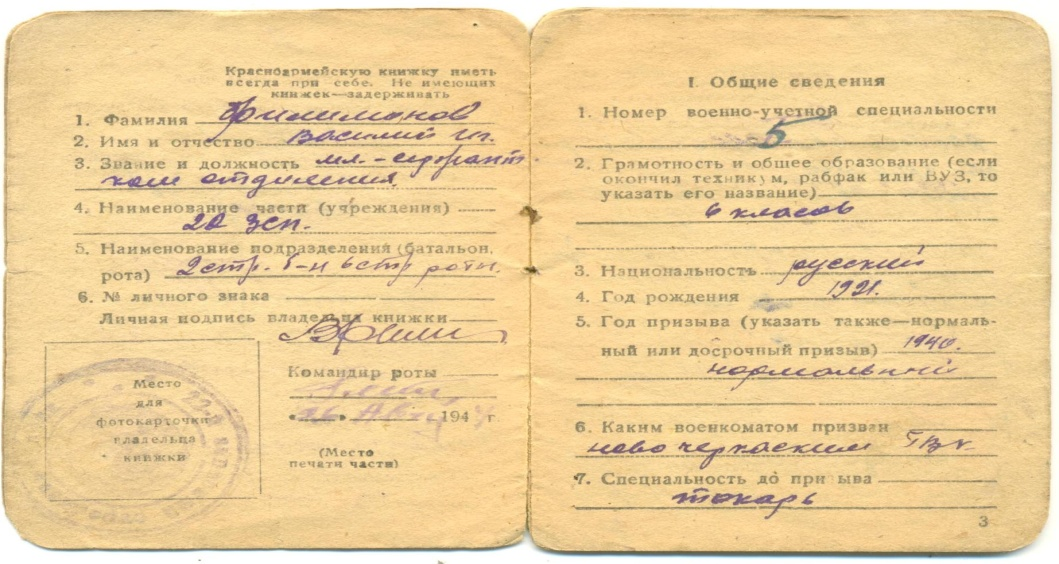 Красноармейскую книжку иметь
всегда при себе. Не имеющих
книжек—задерживать
1. Фамилия Филимонов
2. Имя и отчество Василий
3. Звание и должность мл.-сержант
ком отделения
4. Наименование части (учреждения)
20 зсп.
5. Наименование подразделения (батальон,
рота) 2 стр. б-н 6 стр роты
6. № личного знака
Личная подпись владельца книжки
Командир роты
«26» 194 г.
Место
для
фотокарточки
владельца
книжки
(Место
печати части)
I. Общие сведения
1. Номер военно-учетной специальности
5
2. Грамотность и общее образование (если
окончил техникум, рабфак или ВУЗ, то
указать его название)
6 класов
3. Национальность русский
4. Год рождения 1921.
5. Год призыва (указать также—нормаль-
ный или досрочный призыв) 1940.
нормальный
6. Каким военкоматом призван
новочеркаским ГВК
7. Специальность до призыва
токарь
3